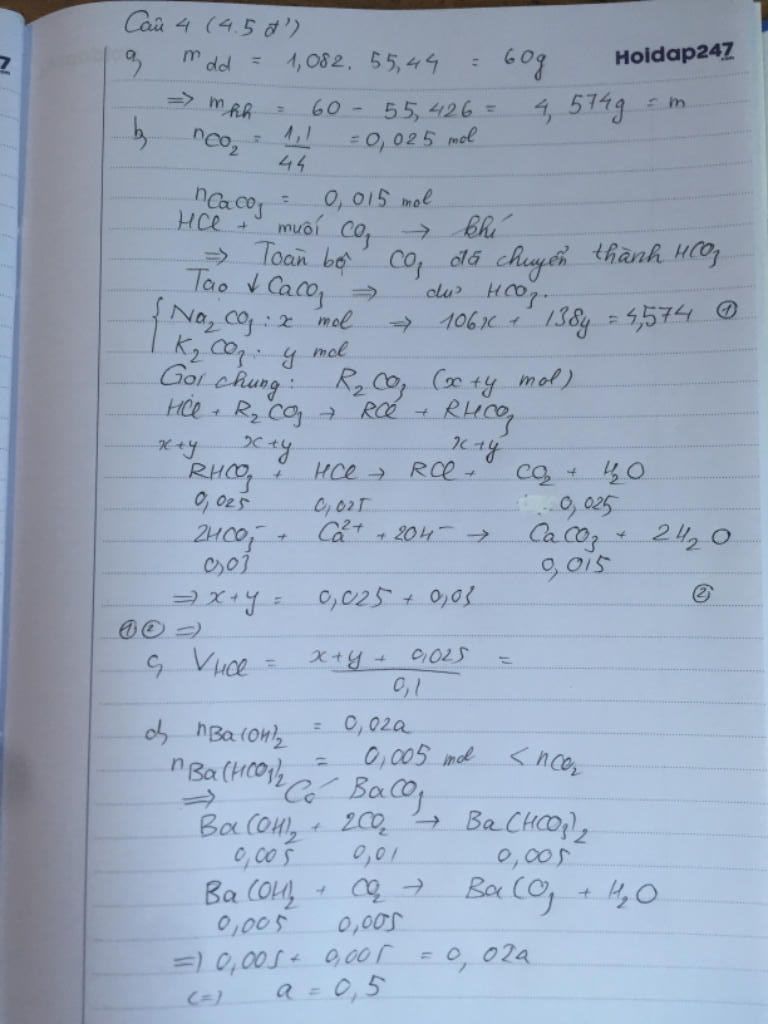 Câu 4 (4.5 đ')
a, mdd = 1,082. 55,44 = 60g
Hoidap247
=> mhh = 60 - 55,426 = 4,574g = m
b, nCO2 = 1,1/44 = 0,025 mol
nCaCO3 = 0,015 mol
HCl + muối CO3 → khí
=> Toàn bộ CO3 đã chuyển thành HCO3
Tạo ↓ CaCO3 => dư HCO3.
{ Na2CO3: x mol => 106x + 138y = 4,574 ①
K2CO3: y mol
Gọi chung: R2CO3 (x+y mol)
HCl + R2CO3 → RCl + RHCO3
x+y x+y x+y
RHCO3 + HCl → RCl + CO2 + H2O
0,025 0,025 0,025
2HCO3- + Ca2+ + 2OH- → CaCO3 + 2H2O
0,03 0,015
=> x+y = 0,025 + 0,03 ②
①② =>
c, VHCl = x+y + 0,025/0,1 =
d, nBa(OH)2 = 0,02a
nBa(HCO3)2 = 0,005 mol < nCO2
=> Có BaCO3
Ba(OH)2 + 2CO2 → Ba(HCO3)2
0,005 0,01 0,005
Ba(OH)2 + CO2 → BaCO3 + H2O
0,005 0,005
=> 0,005 + 0,005 = 0,02a
(=) a = 0,5